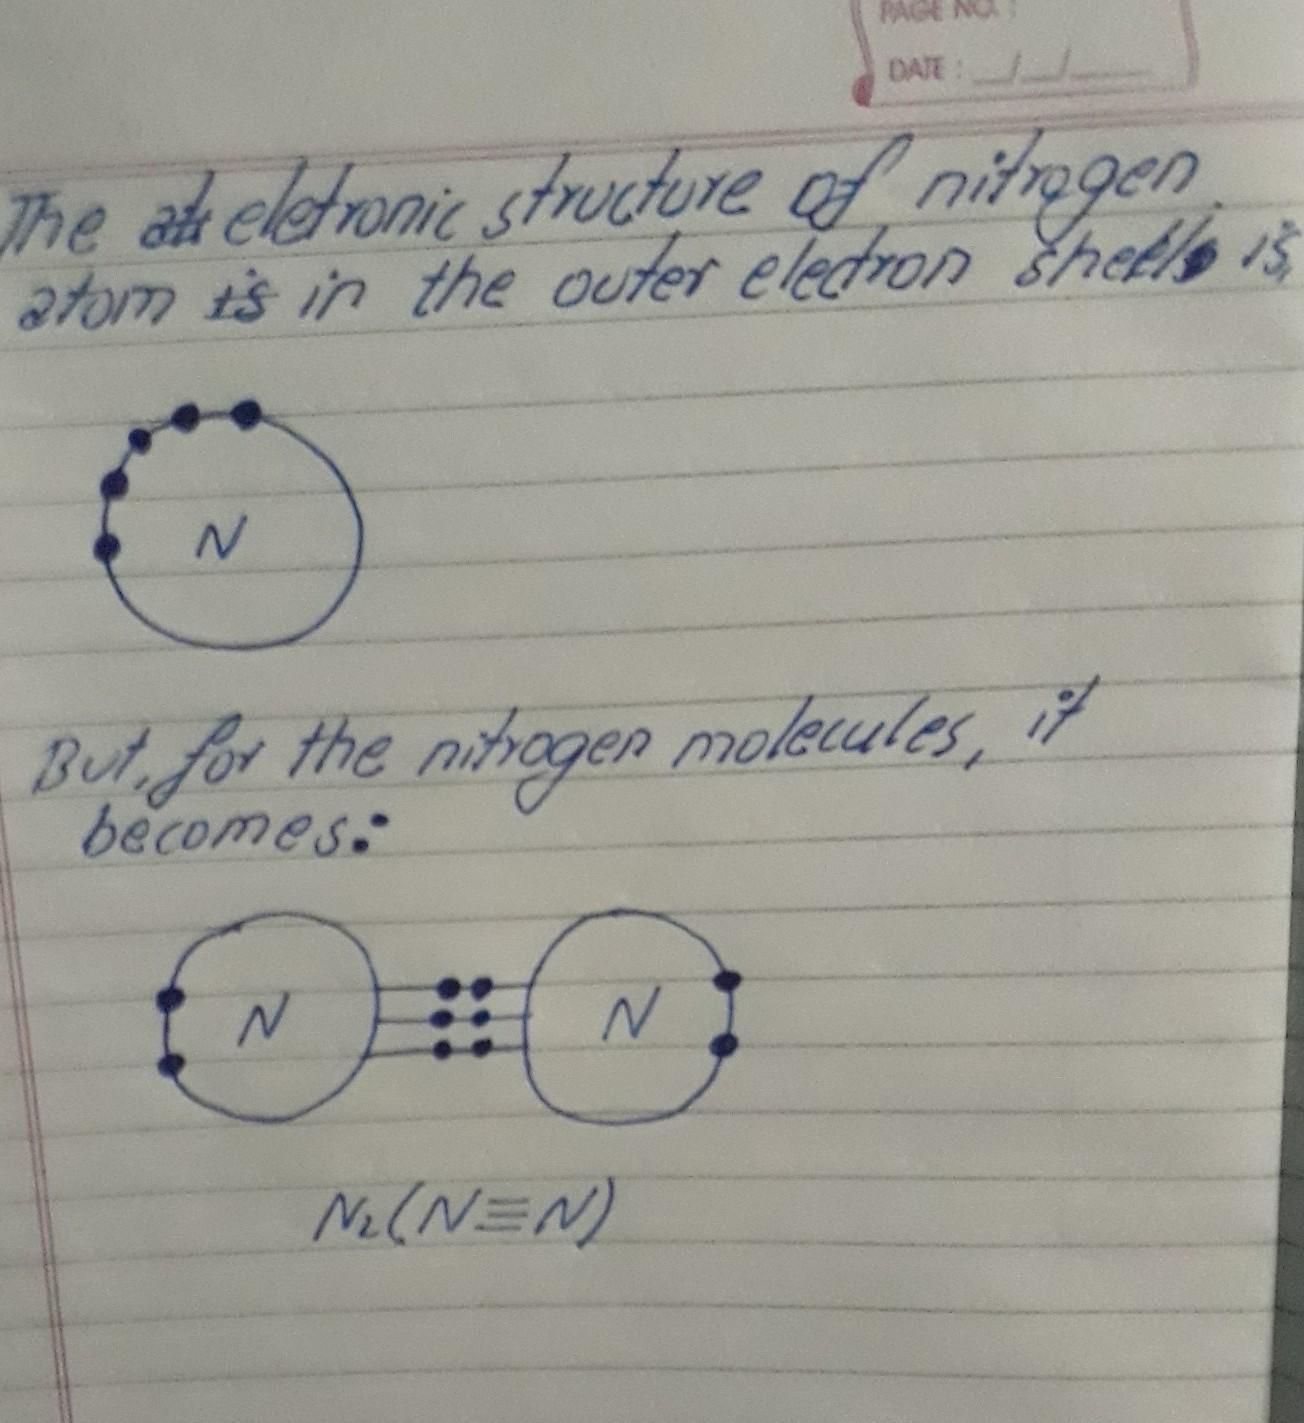 PAGE NO. :
DATE : __/__/____
The eletronic structure of nitrogen
atom is in the outer electron shells is,
N
But, for the nitrogen molecules, it
becomes:
N N
N₂(N≡N)